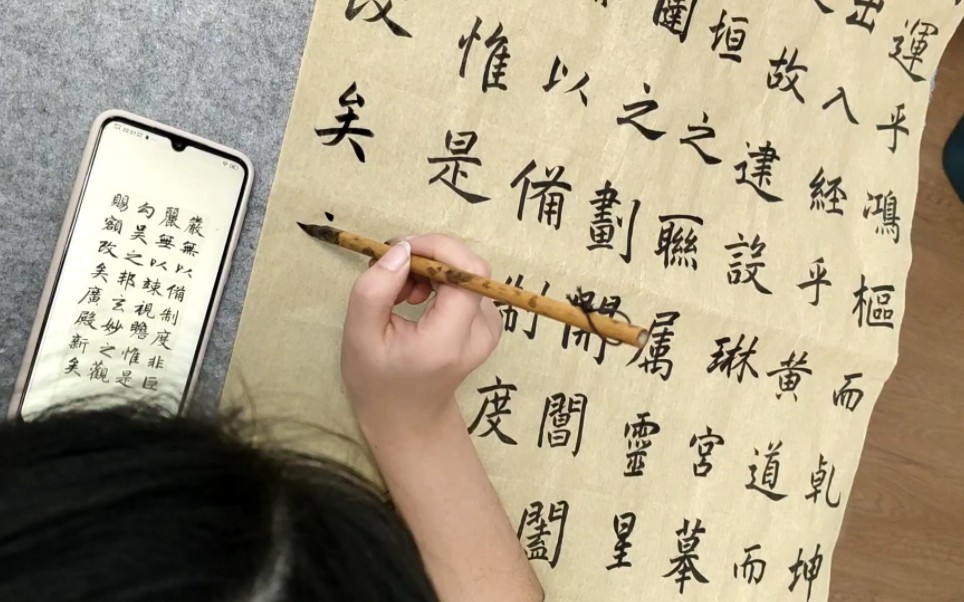 運乎鴻樞而乹坤
出入經乎黃道而
故建設琳宮摹
垣之聯属靈星
闥之劃開閶闔
以備制度
惟是
改矣
嚴無以備制度非巨
麗無以竦視瞻惟是
勾吳之邦玄妙之觀
賜額改矣廣殿新矣